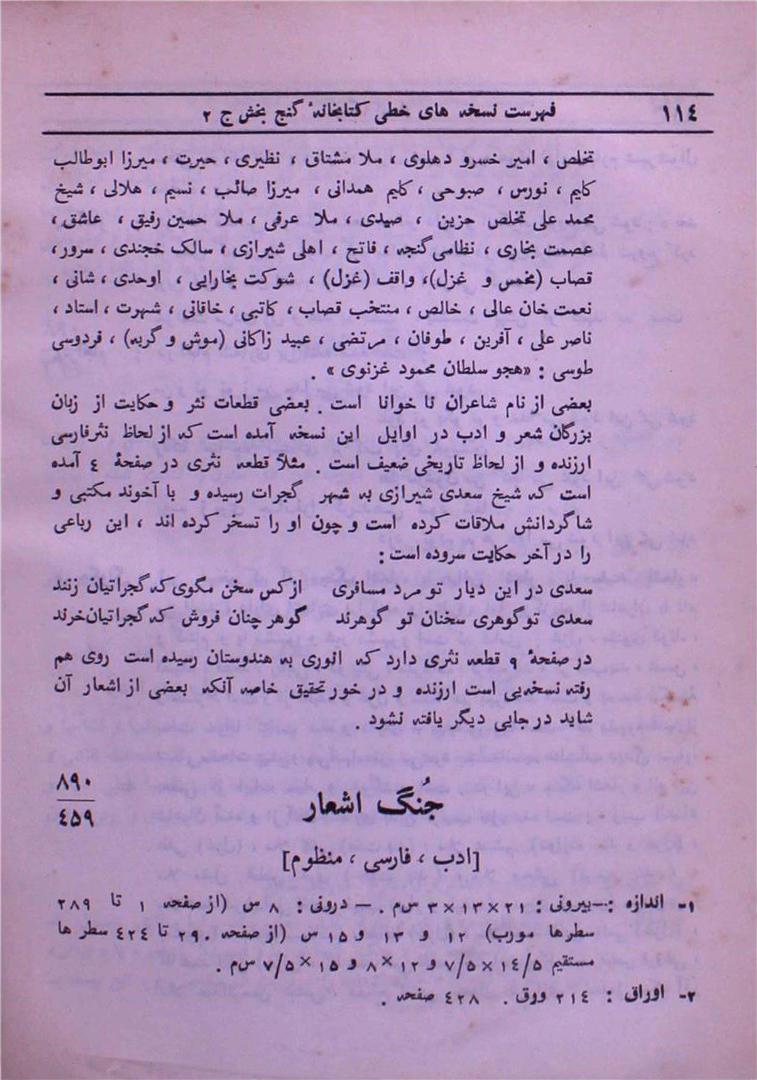 ۱۱۴ فهرست نسخه های خطی کتابخانهٔ گنج بخش ج ۲
تخلص ، امیر خسرو دهلوی ، ملا مشتاق ، نظیری ، حیرت ، میرزا ابوطالب
کلیم ، نورس ، صبوحی ، کلیم همدانی ، میرزا صائب ، نسیم ، هلالی ، شیخ
محمد علی تخلص حزین ، صیدی ، ملا عرفی ، ملا حسین رفیق ، عاشق ،
عصمت بخاری ، نظامی گنجه ، فاتح ، اهلی شیرازی ، سالک خجندی ، سرور ،
قصاب (مخمس و غزل)، واقف (غزل) ، شوکت بخارایی ، اوحدی ، شانی ،
نعمت خان عالی ، خالص ، منتخب قصاب ، کاتبی ، خاقانی ، شهرت ، استاد ،
ناصر علی ، آفرین ، طوفان ، مرتضی ، عبید زاکانی (موش و گربه) ، فردوسی
طوسی : «هجو سلطان محمود غزنوی» .
بعضی از نام شاعران نا خوانا است . بعضی قطعات نثر و حکایت از زبان
بزرگان شعر و ادب در اوایل این نسخه آمده است که از لحاظ نثرفارسی
ارزنده و از لحاظ تاریخی ضعیف است . مثلاً قطعه نثری در صفحهٔ ۴ آمده
است که شیخ سعدی شیرازی به شهر گجرات رسیده و با آخوند مکتبی و
شاگردانش ملاقات کرده است و چون او را تسخر کرده اند ، این رباعی
را در آخر حکایت سروده است :
سعدی در این دیار تو مرد مسافری ازکس سخن مگوی که گجراتیان زنند
سعدی توگوهری سخنان تو گوهرند گوهر چنان فروش که گجراتیان خرند
در صفحهٔ ۹ قطعه نثری دارد که انوری به هندوستان رسیده است روی هم
رفته نسخه‌یی است ارزنده و در خور تحقیق خاصه آنکه بعضی از اشعار آن
شاید در جایی دیگر یافته نشود .
۸۹۰
۴۵۹
جُنگ اشعار
[ادب ، فارسی ، منظوم]
۱- اندازه :-بیرونی : ۲۱×۱۳×۳ س‌م . - درونی : ۸ س (از صفحه ۱ تا ۲۸۹
سطرها مورب) ۱۲ و ۱۳ و ۱۵ س (از صفحه ۲۹۰ تا ۴۲۴ سطر ها
مستقیم ۱۴/۵ × ۷/۵ و ۱۲ × ۸ و ۱۵ × ۷/۵ س‌م .
۲- اوراق : ۲۱۴ ورق . ۴۲۸ صفحه .